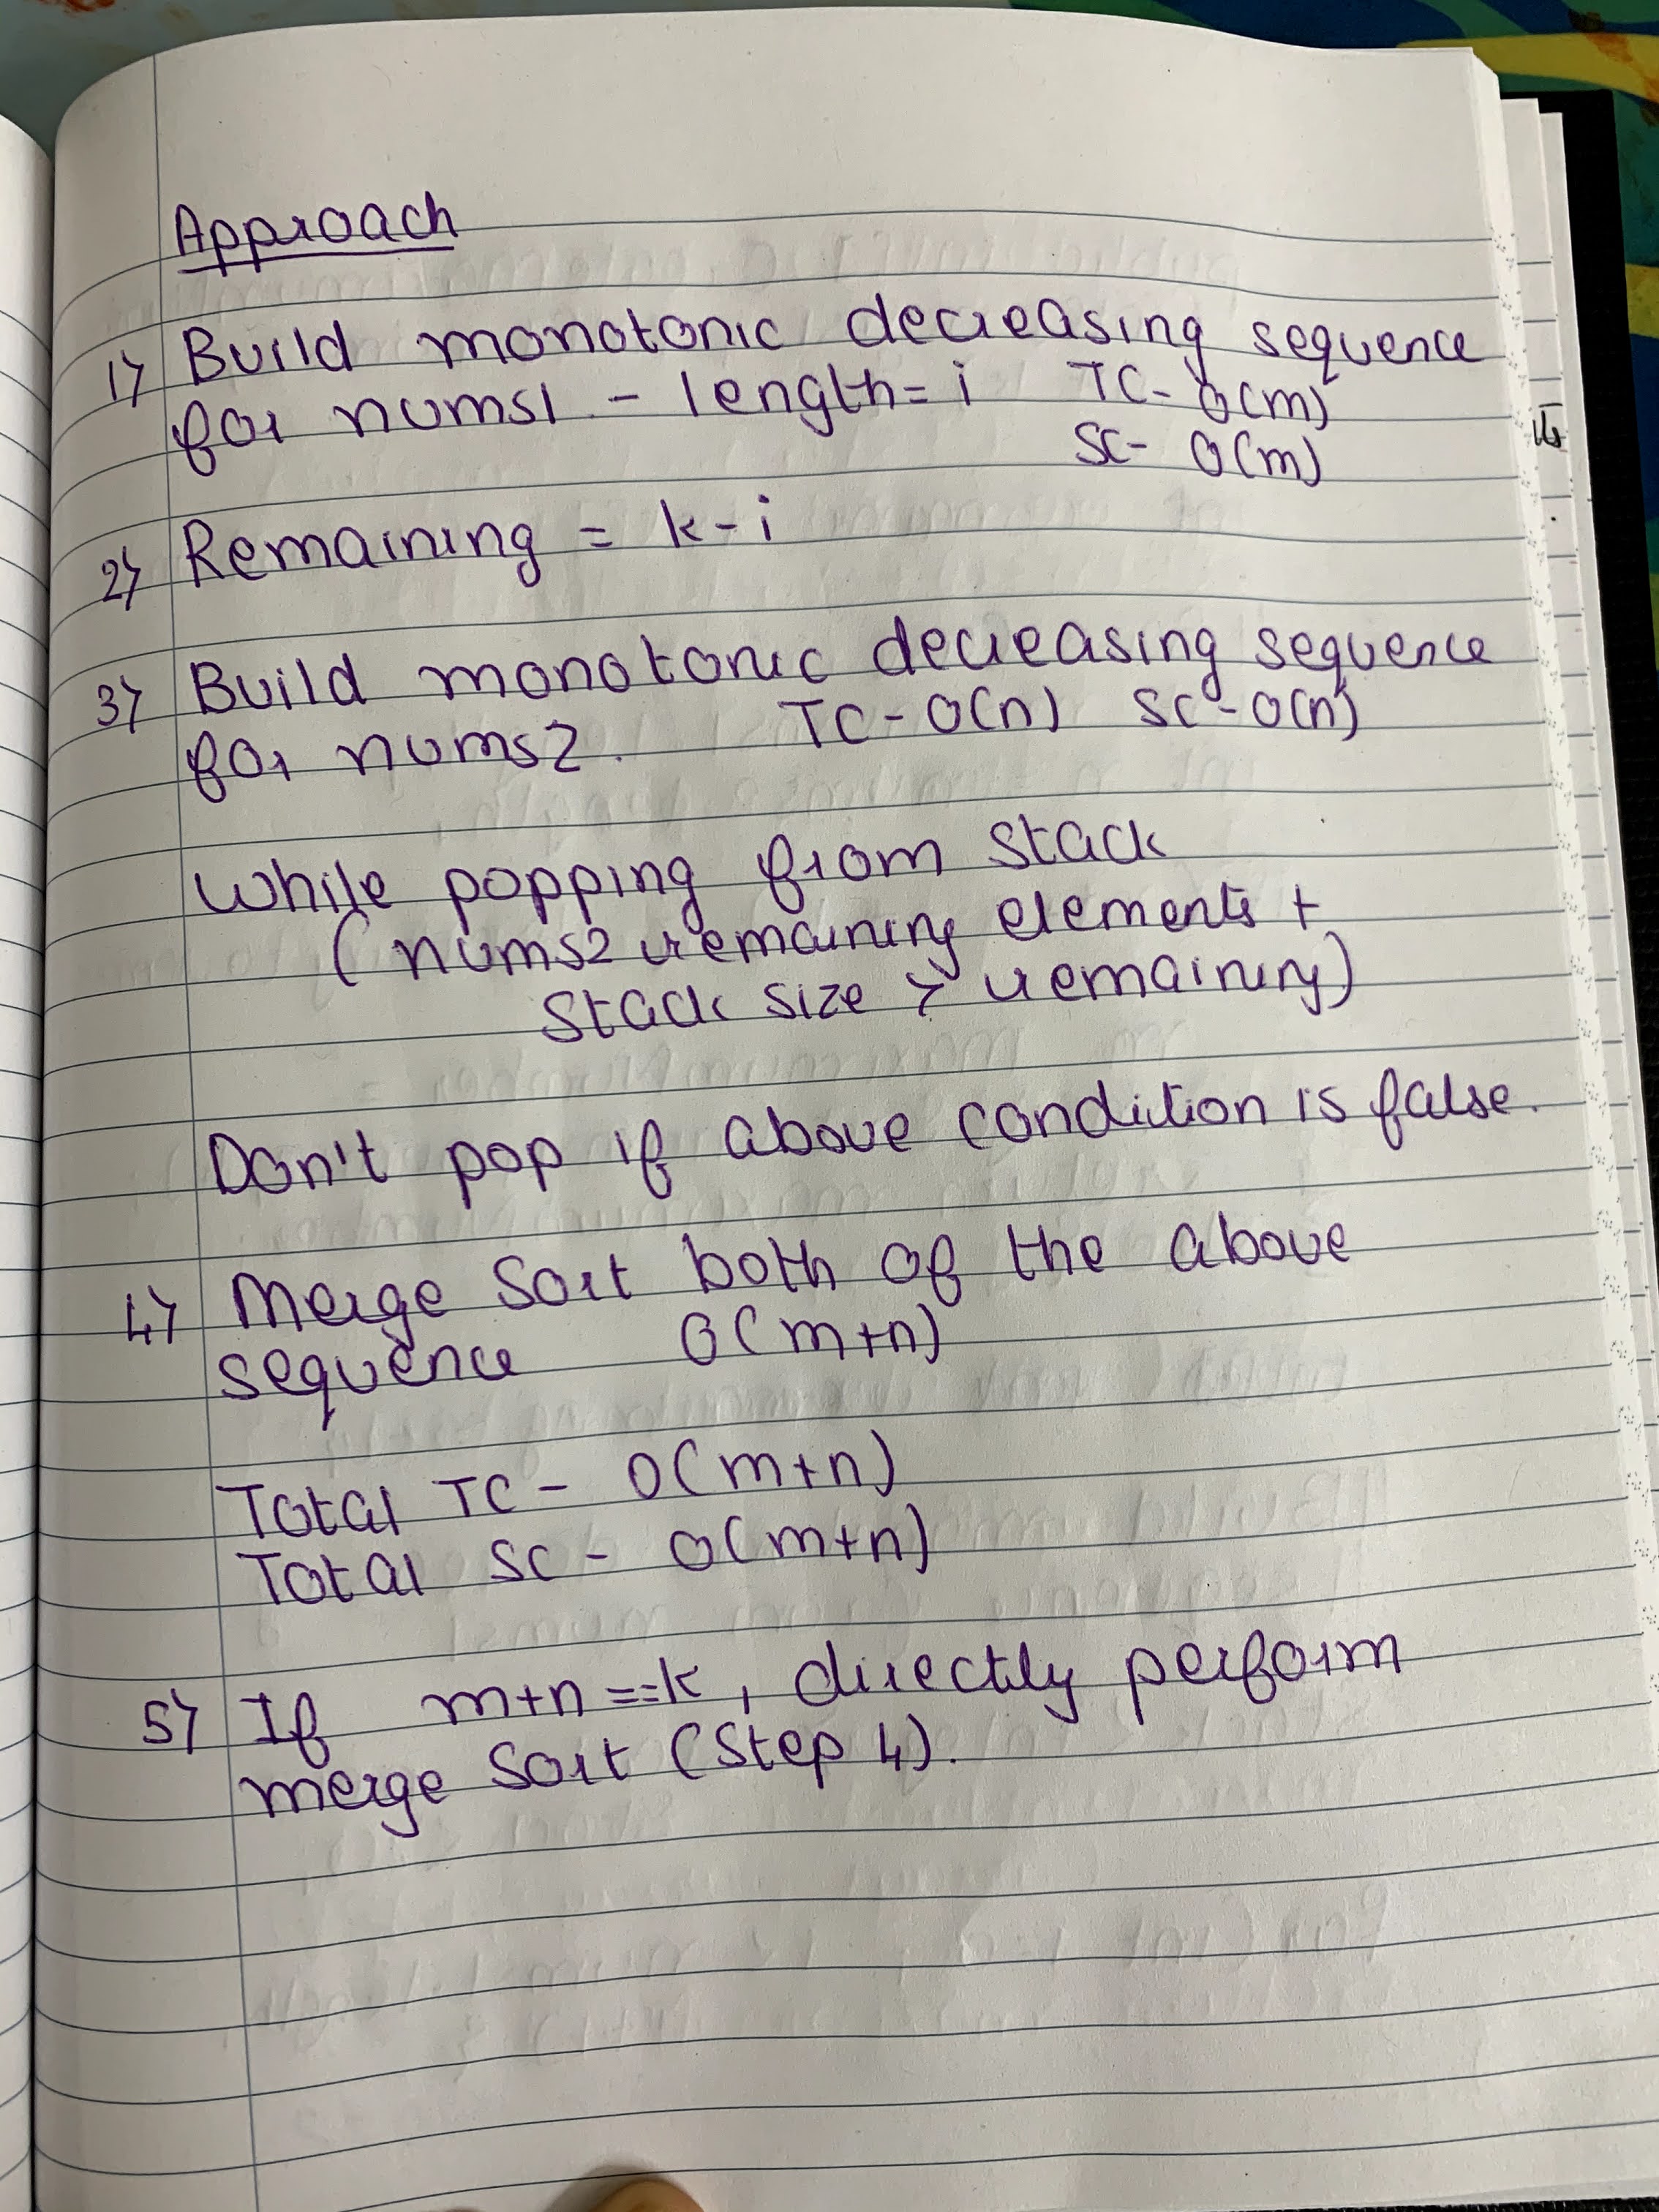 Approach
1) Build monotonic decreasing sequence
for nums1 - length = i TC - O(m)
SC - O(m)
2) Remaining = k - i
3) Build monotonic decreasing sequence
for nums2. TC - O(n) SC - O(n)
While popping from stack
( nums2 remaining elements +
stack size > remaining)
Don't pop if above condition is false.
4) Merge Sort both of the above
sequence O(m+n)
Total TC - O(m+n)
Total SC - O(m+n)
5) If m+n ==k, directly perform
merge sort (Step 4).